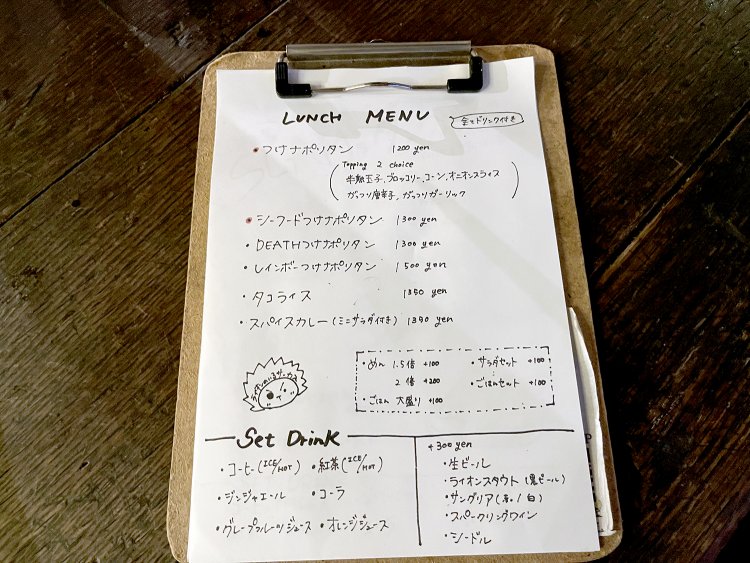 LUNCH MENU
全てドリンク付き
・つけナポリタン 1200 yen
(Topping 2 choice
半熟玉子, ブロッコリー, コーン, オニオンスライス
がっつり唐辛子, がっつりガーリック)
・シーフードつけナポリタン 1300 yen
・DEATHつけナポリタン 1300 yen
・レインボーつけナポリタン 1500 yen
・タコライス 1350 yen
・スパイスカレー(ミニサラダ付き) 1350 yen
・めん 1.5倍 +100 ・サラダセット +100
2倍 +200 ・ごはんセット +100
・ごはん 大盛り +100
Set Drink
・コーヒー(ICE/HOT) ・紅茶(ICE/HOT)
・ジンジャエール ・コーラ
・グレープフルーツジュース ・オレンジジュース
+300yen
・生ビール
・ライオンスタウト(黒ビール)
・サングリア(赤/白)
・スパークリングワイン
・シードル